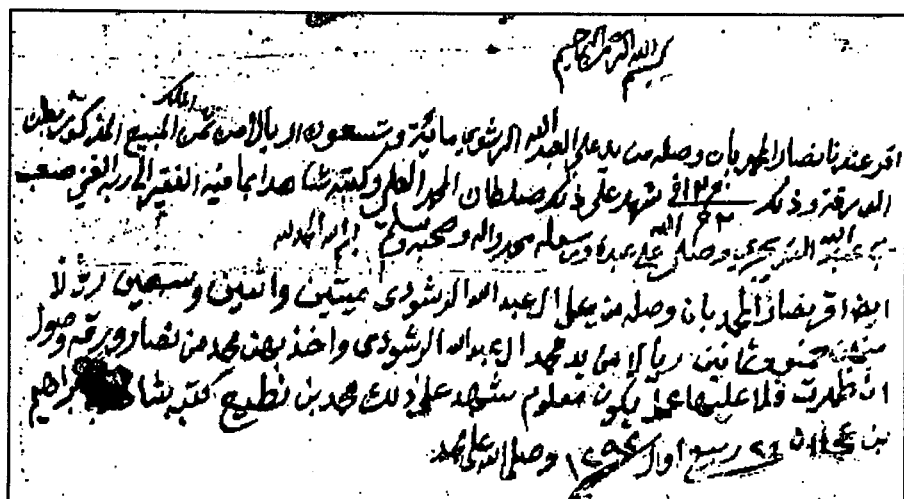 بسم الله الرحمن الرحيم
الملك
اقر عندنا نصار المحمد بان وصله من يد علي العبدالله الرشودي مائة وتسعون اريال من ثمن المبيع المذكور بطن
الورقة وذلك في شهد على ذلك صلطان المحمد العلي وكتبه شاهدا بما فيه الفقير الى ربه الغني صعب
بن عبدالله التويجري وصلى الله على عبده ورسوله محمد واله وصحبه وسلم بسم الله الحمد لله
ايضا اقر نصار المحمد بان وصله من يد علي ال عبد الله الرشودى ميتين واثنين وسبعين ريال
منهن خمس وثمانين ريال من يد محمد ال عبد الله الرشودى واخذ بهن محمد من نصار ورقه وصول
ان ظهرت فلا عليها عمل يكون معلوم شهد على ذلك محمد بن نطيح كتبه شاهد ابراهيم
بن ربيع اول وصلى الله على محمد